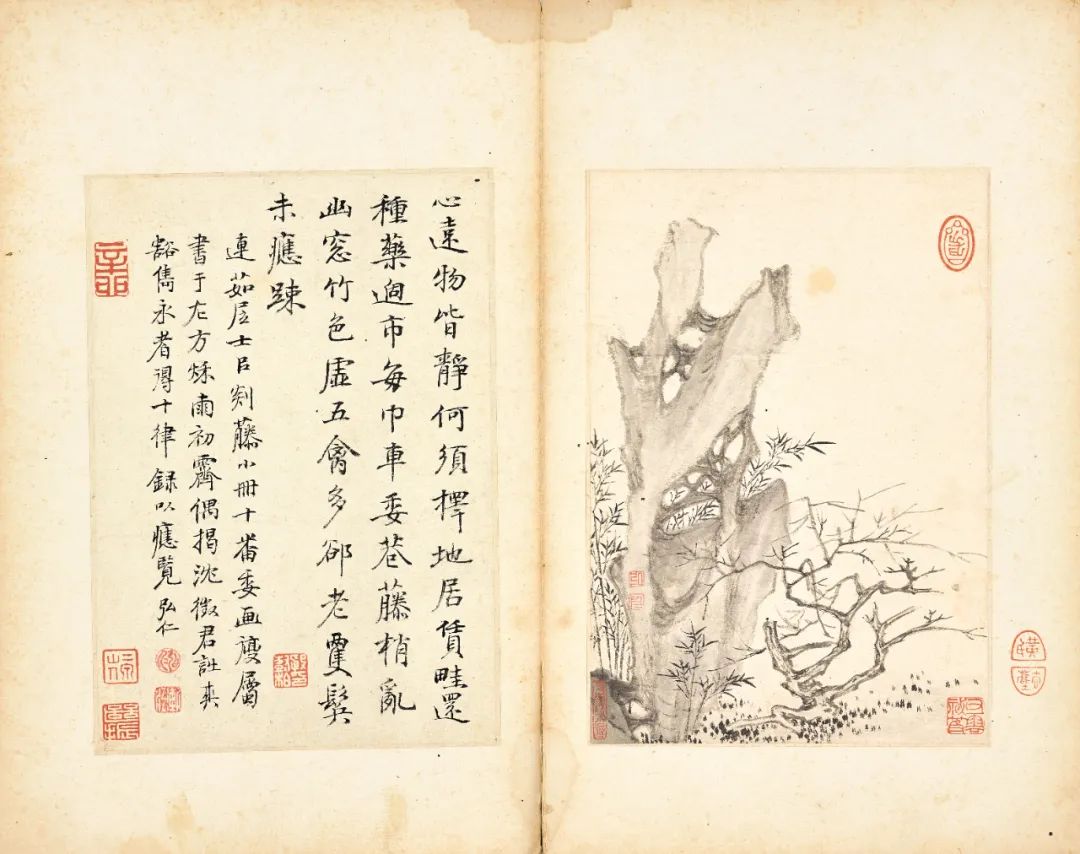 心遠物皆靜何須擇地居賃畦還
種藥過市每巾車委巷藤梢亂
幽窓竹色虛五禽多郤老鬢
未應踈
連茹居士㠯剡藤小冊十番委画複屬
書于左方秌雨初霽偶揭沈徵君詩爽
豁雋永者得十律録㕥應覽弘仁